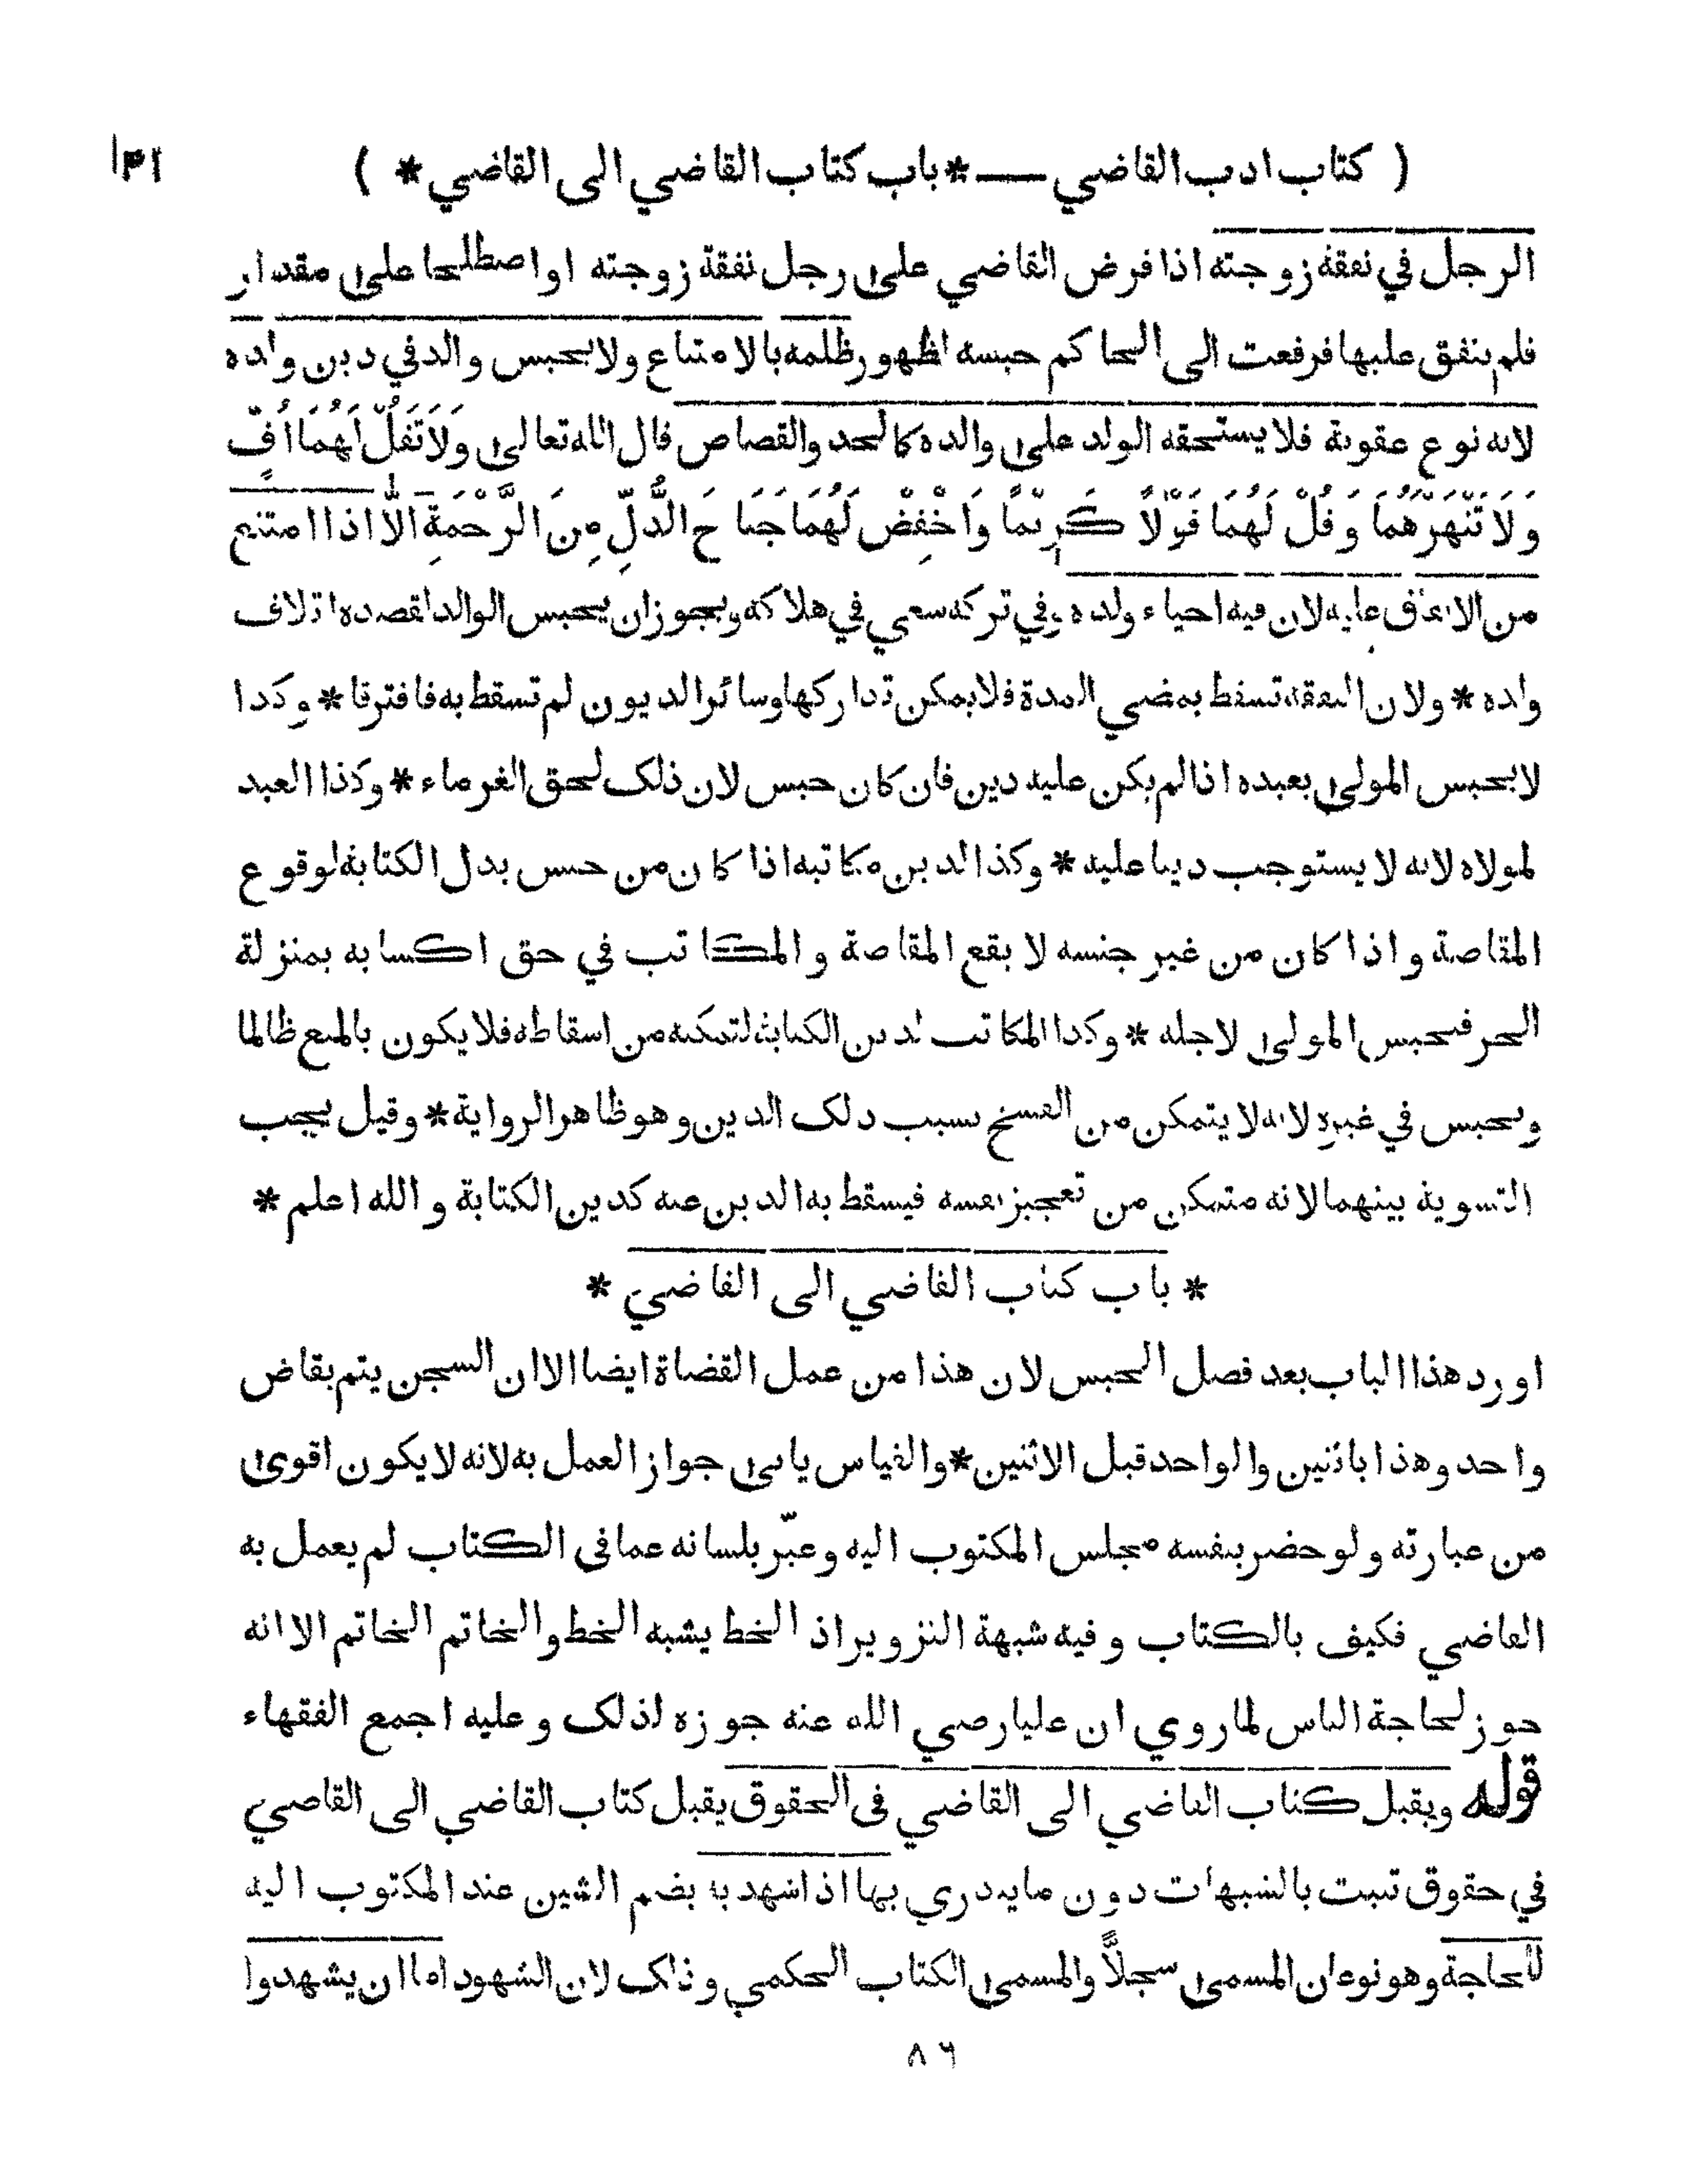 ( كتاب ادب القاضي — * باب كتاب القاضي الى القاضي * )
الرجل في نفقة زوجته اذا فرض القاضي على رجل نفقة زوجته او اصطلحا على مقدار
فلم ينفق عليها فرفعت الى الحاكم حبسه لظهور ظلمه بالامتناع ولا يحبس والد في دين ولده
لانه نوع عقوبة فلا يستحقه الولد على والده كالحد والقصاص قال الله تعالى وَلَا تَقُلْ لَهُمَا أُفٍّ
وَلَا تَنْهَرْهُمَا وَقُلْ لَهُمَا قَوْلًا كَرِيمًا وَاخْفِضْ لَهُمَا جَنَاحَ الذُّلِّ مِنَ الرَّحْمَةِ الّا اذا امتنع
من الانفاق عليه لان فيه احياء ولده وفي تركه سعي في هلاكه ويجوز ان يحبس الوالد لقصده اتلاف
ولده * ولان النفقة تسقط بمضي المدة فلا يمكن تداركها وسائر الديون لم تسقط به فافترقا * وكذا
لا يحبس المولى بعبده اذا لم يكن عليه دين فان كان حبس لان ذلك لحق الغرماء * وكذا العبد
لمولاه لانه لا يستوجب دينا عليه * وكذا لدين مكاتبه اذا كان من جنس بدل الكتابة لوقوع
المقاصة واذا كان من غير جنسه لا يقع المقاصة والمكاتب في حق اكسابه بمنزلة
الحر فيحبس المولى لاجله * وكذا المكاتب لدين الكتابة لتمكنه من اسقاطه فلا يكون بالمنع ظالما
ويحبس في غيره لانه لا يتمكن من الفسخ بسبب ذلك الدين وهو ظاهر الرواية * وقيل يجب
التسوية بينهما لانه متمكن من تعجيز نفسه فيسقط به الدين عنه كدين الكتابة والله اعلم *
* باب كتاب القاضي الى القاضي *
اورد هذا الباب بعد فصل الحبس لان هذا من عمل القضاة ايضا الا ان السجن يتم بقاض
واحد وهذا باثنين والواحد قبل الاثنين * والقياس يابى جواز العمل به لانه لا يكون اقوى
من عبارته ولو حضر بنفسه مجلس المكتوب اليه وعبّر بلسانه عما فى الكتاب لم يعمل به
القاضي فكيف بالكتاب وفيه شبهة التزوير اذ الخط يشبه الخط والخاتم الخاتم الا انه
جوز لحاجة الناس لما روي ان عليا رضي الله عنه جوزه لذلك وعليه اجمع الفقهاء
قوله ويقبل كتاب القاضي الى القاضي فى الحقوق يقبل كتاب القاضي الى القاضي
في حقوق تثبت بالشبهات دون ما يندري بها اذا شهد به بضم الشين عند المكتوب اليه
للحاجة وهو نوعان المسمى سجلاًّ والمسمى الكتاب الحكمي وذلك لان الشهود اما ان يشهدوا
٨٦